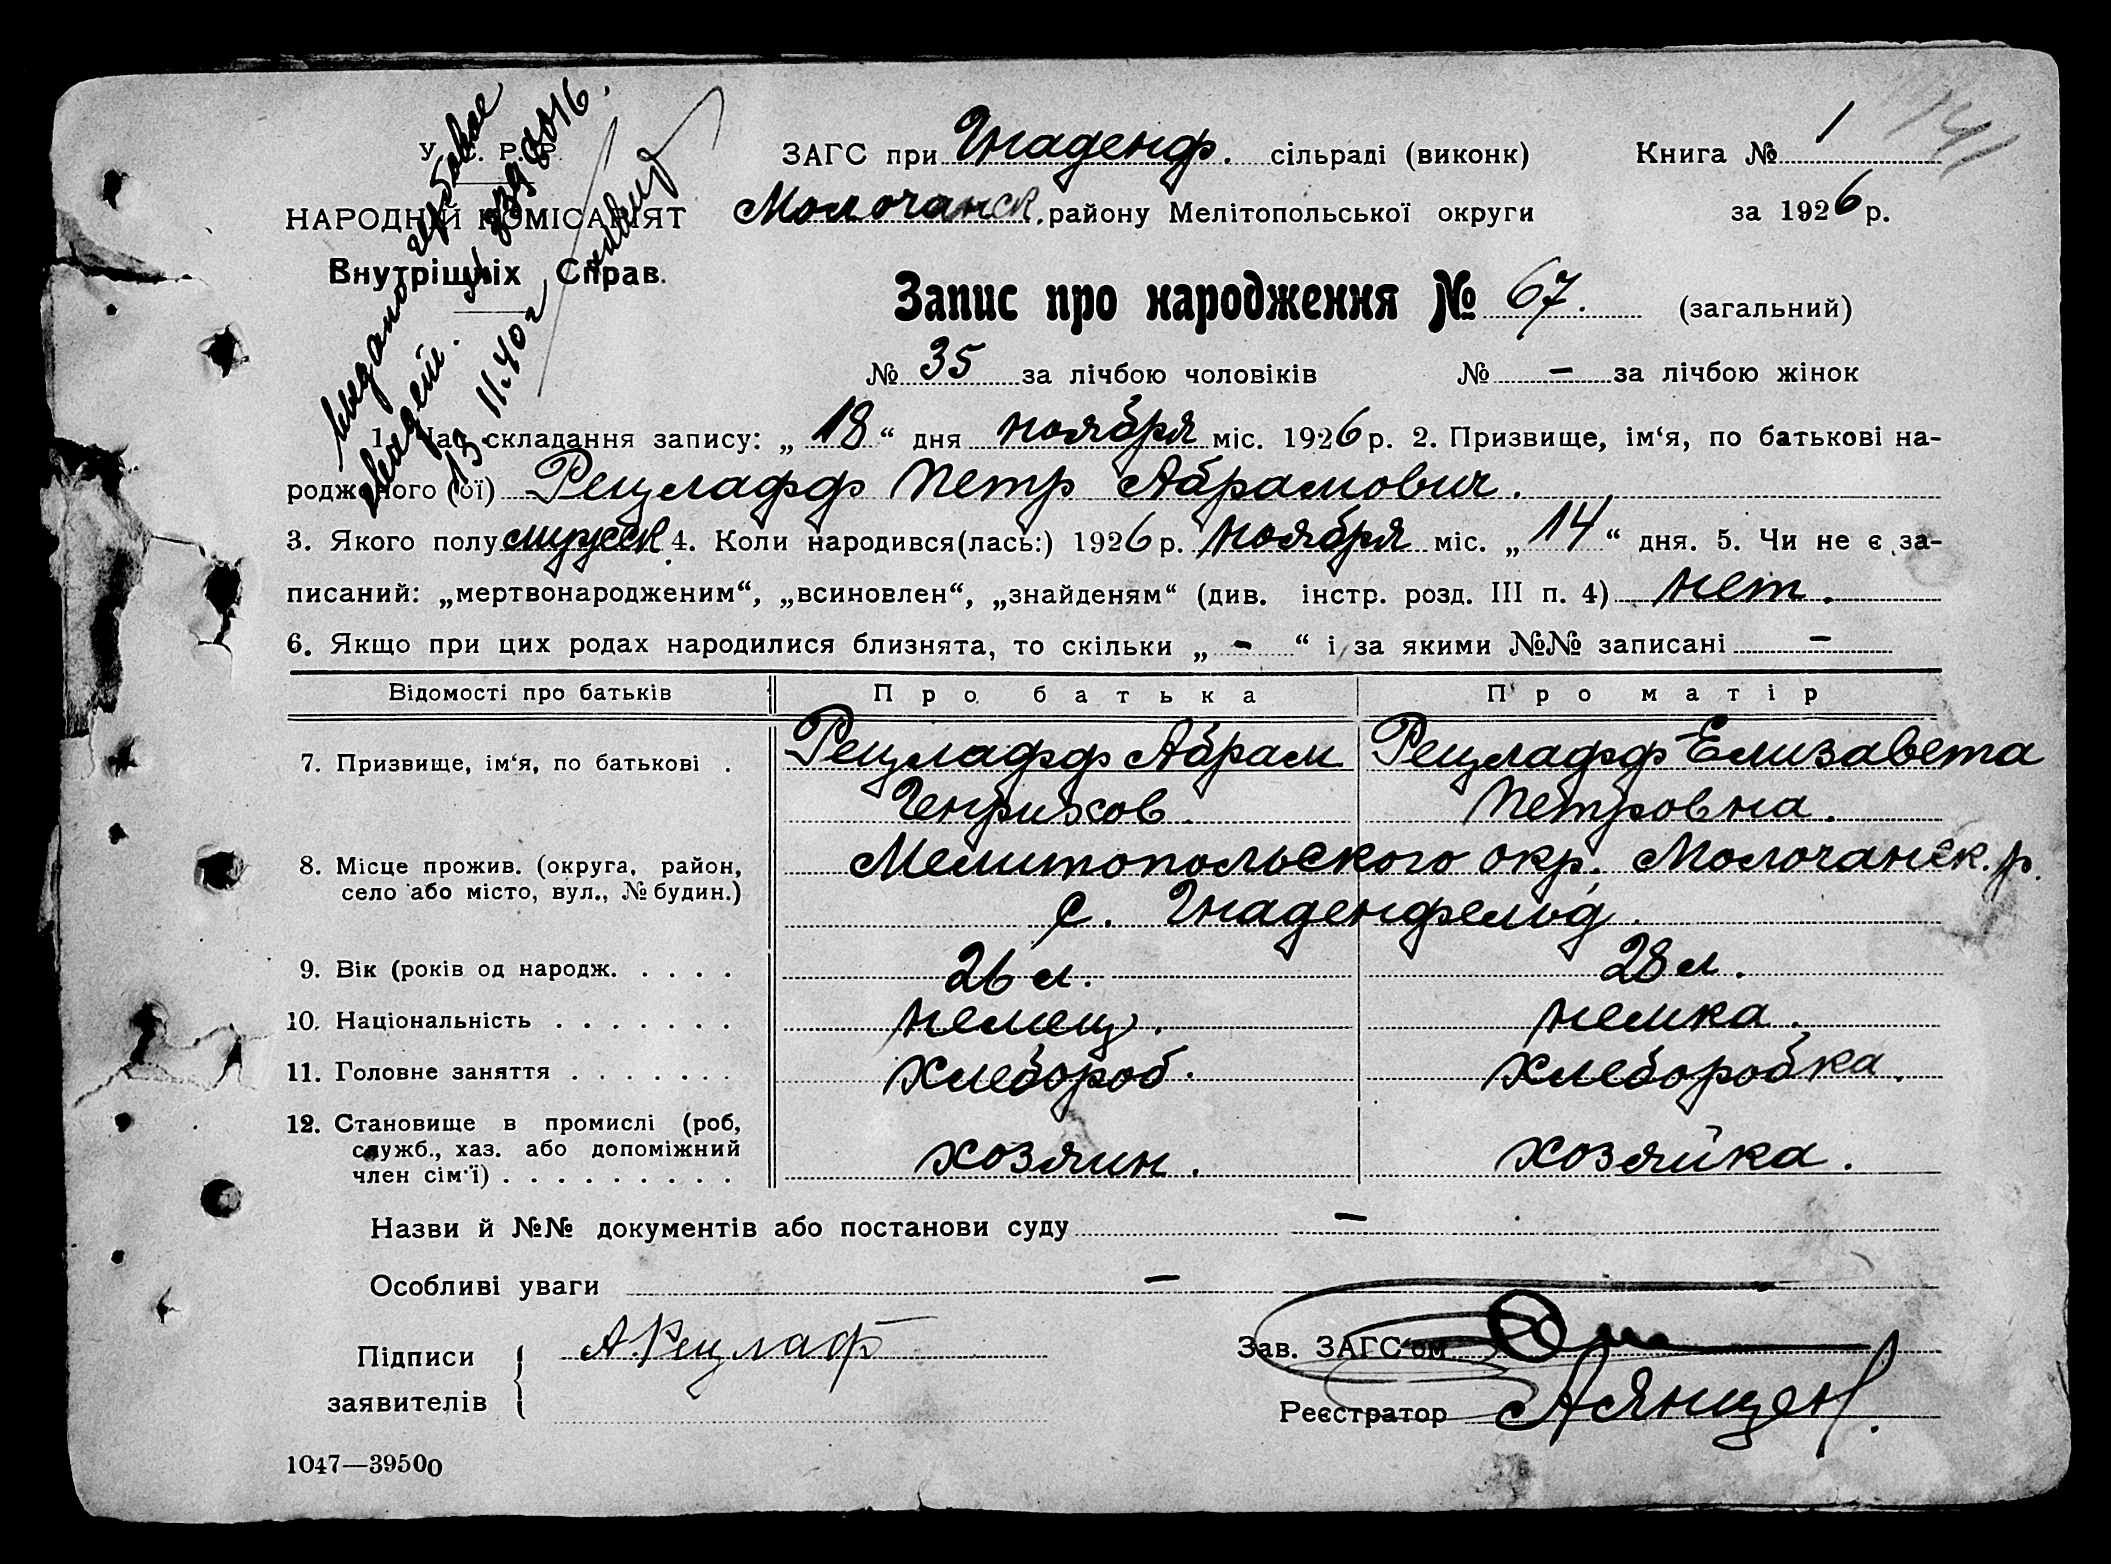 У. С. Р. Р. ЗАГС при Гнаденф. сільраді (виконк) Книга № 1 141
НАРОДНІЙ КОМІСАРІЯТ Молочанск. району Мелітопольської округи за 1926 р.
Внутрішніх Справ.
выдано гербовое
свидет.
13 11.40 г
Запис про народження № 67. (загальний)
№ 35 за лічбою чоловіків № - за лічбою жінок
1. Час складання запису: „ 18 “ дня ноября міс. 1926 р. 2. Призвище, ім‘я, по батькові на-
родженого (ої) Рецлафф Петр Абрамович.
3. Якого полу мужеск. 4. Коли народився(лась:) 1926 р. ноября міс. „ 14 “ дня. 5. Чи не є за-
писаний: „мертвонародженим“, „всиновлен“, „знайденям“ (див. інстр. розд. III п. 4) нет.
6. Якщо при цих родах народилися близнята, то скільки „ - “ і за якими №№ записані -
Відомості про батьків Про батька Про матір
7. Призвище, ім‘я, по батькові . Рецлафф Абрам Рецлафф Елизавета
Генрихов. Петровна.
8. Місце прожив. (округа, район, Мелитопольского окр. Молочанск. р.
село або місто, вул., № будин.) с. Гнаденфельд.
9. Вік (років од народж. . . . . 26 л. 28 л.
10. Національність . . . . . . . немец. немка.
11. Головне заняття . . . . . . . хлебороб. хлеборобка.
12. Становище в промислі (роб,
служб., хаз. або допоміжний хозяин. хозяйка.
член сім'ї) . . . . . . . . .
Назви й №№ документів або постанови суду -
Особливі уваги -
Підписи А. Рецлаф Зав. ЗАГС'ом
заявителів Реєстратор А Янцен.
1047—39500